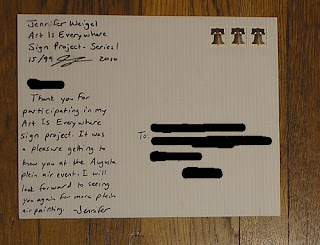 Jennifer Weigel
Art Is Everywhere
Sign Project - Series 1
15/99 2010
Thank you for
participating in my
Art Is Everywhere
sign project. It was
a pleasure getting to
know you at the Augusta
plein air event. I will
look forward to seeing
you again for more plein
air painting. -Jennifer
To: